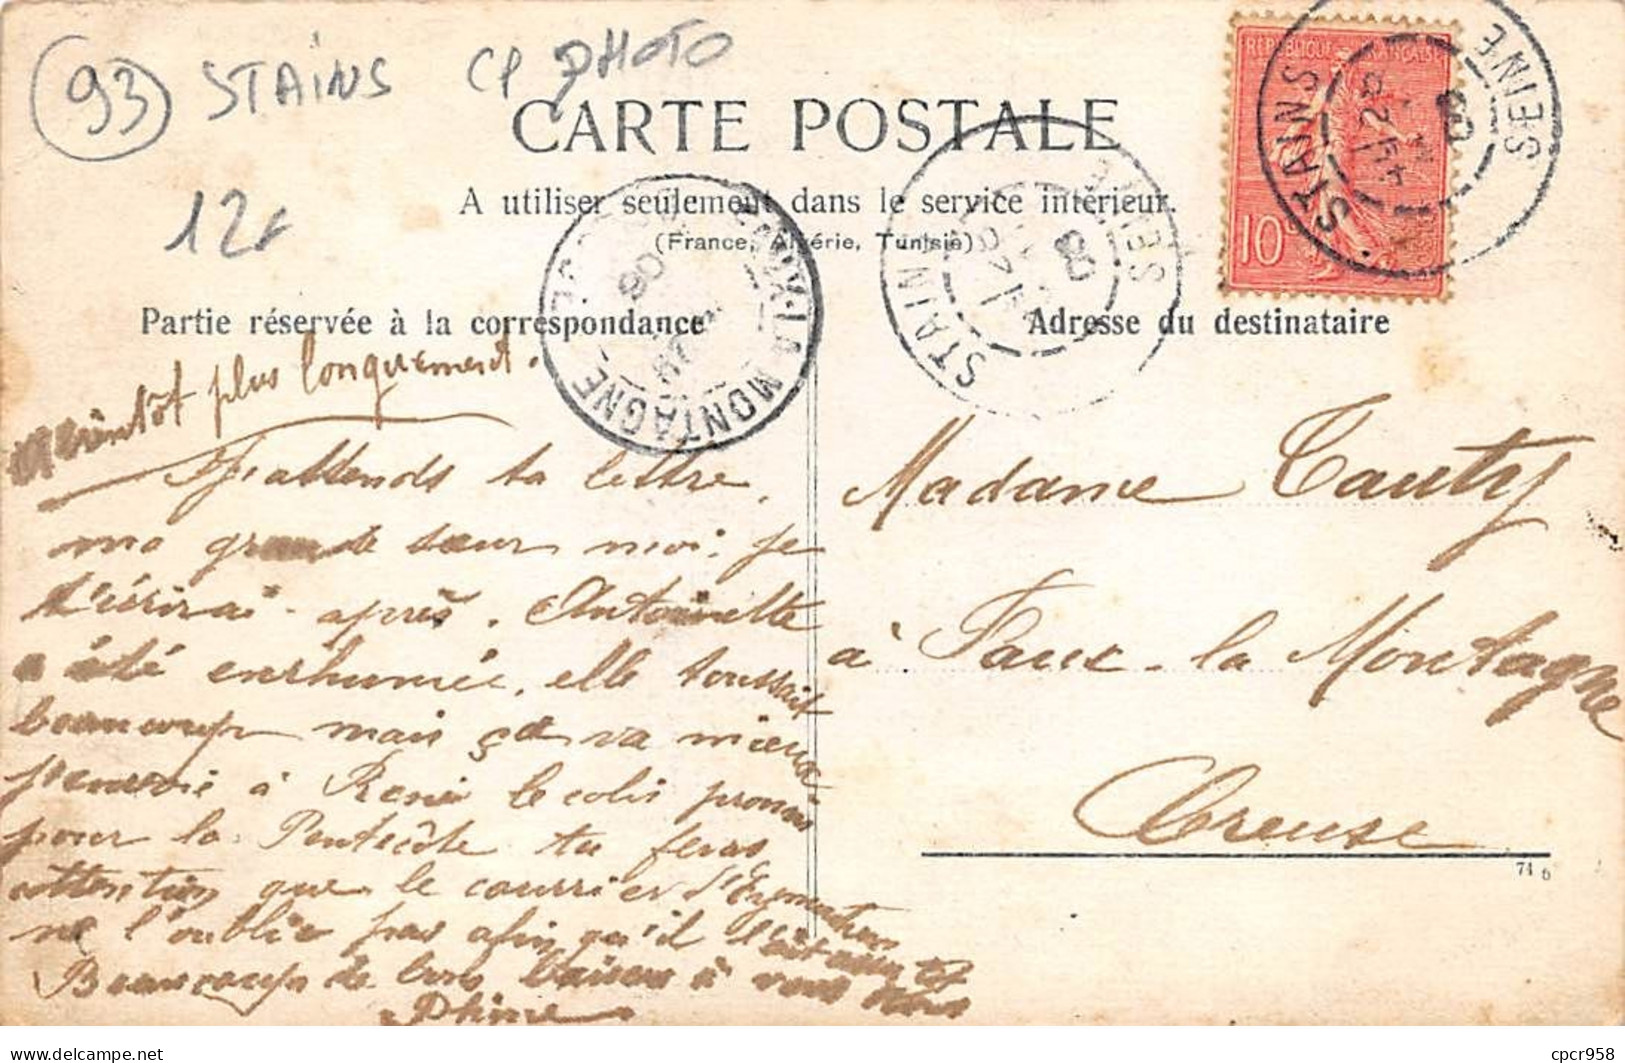 93 STAINS CP PHOTO
CARTE POSTALE
12€
A utiliser seulement dans le service intérieur.
(France, Algérie, Tunisie)
RÉPUBLIQUE FRANÇAISE
10
STAINS SEINE
08
STAINS SEINE
08
FAUX-LA-MONTAGNE
08
Partie réservée à la correspondance
Adresse du destinataire
bientôt plus longuement.
J'attends ta lettre,
ma grande sœur moi, je
t'écrirai après. Antoinette
a été enrhumée, elle toussait
beaucoup mais ça va mieux
j'envoie à René le colis promis
pour la Pentecôte tu feras
attention que le courrier d'Eymoutiers
ne l'oublie pas afin qu'il l'ait
Beaucoup de bons baisers à vous tous
Madame Tauty
à Faux-la Montagne
Creuse
74 b
delcampe.net
cpcr958